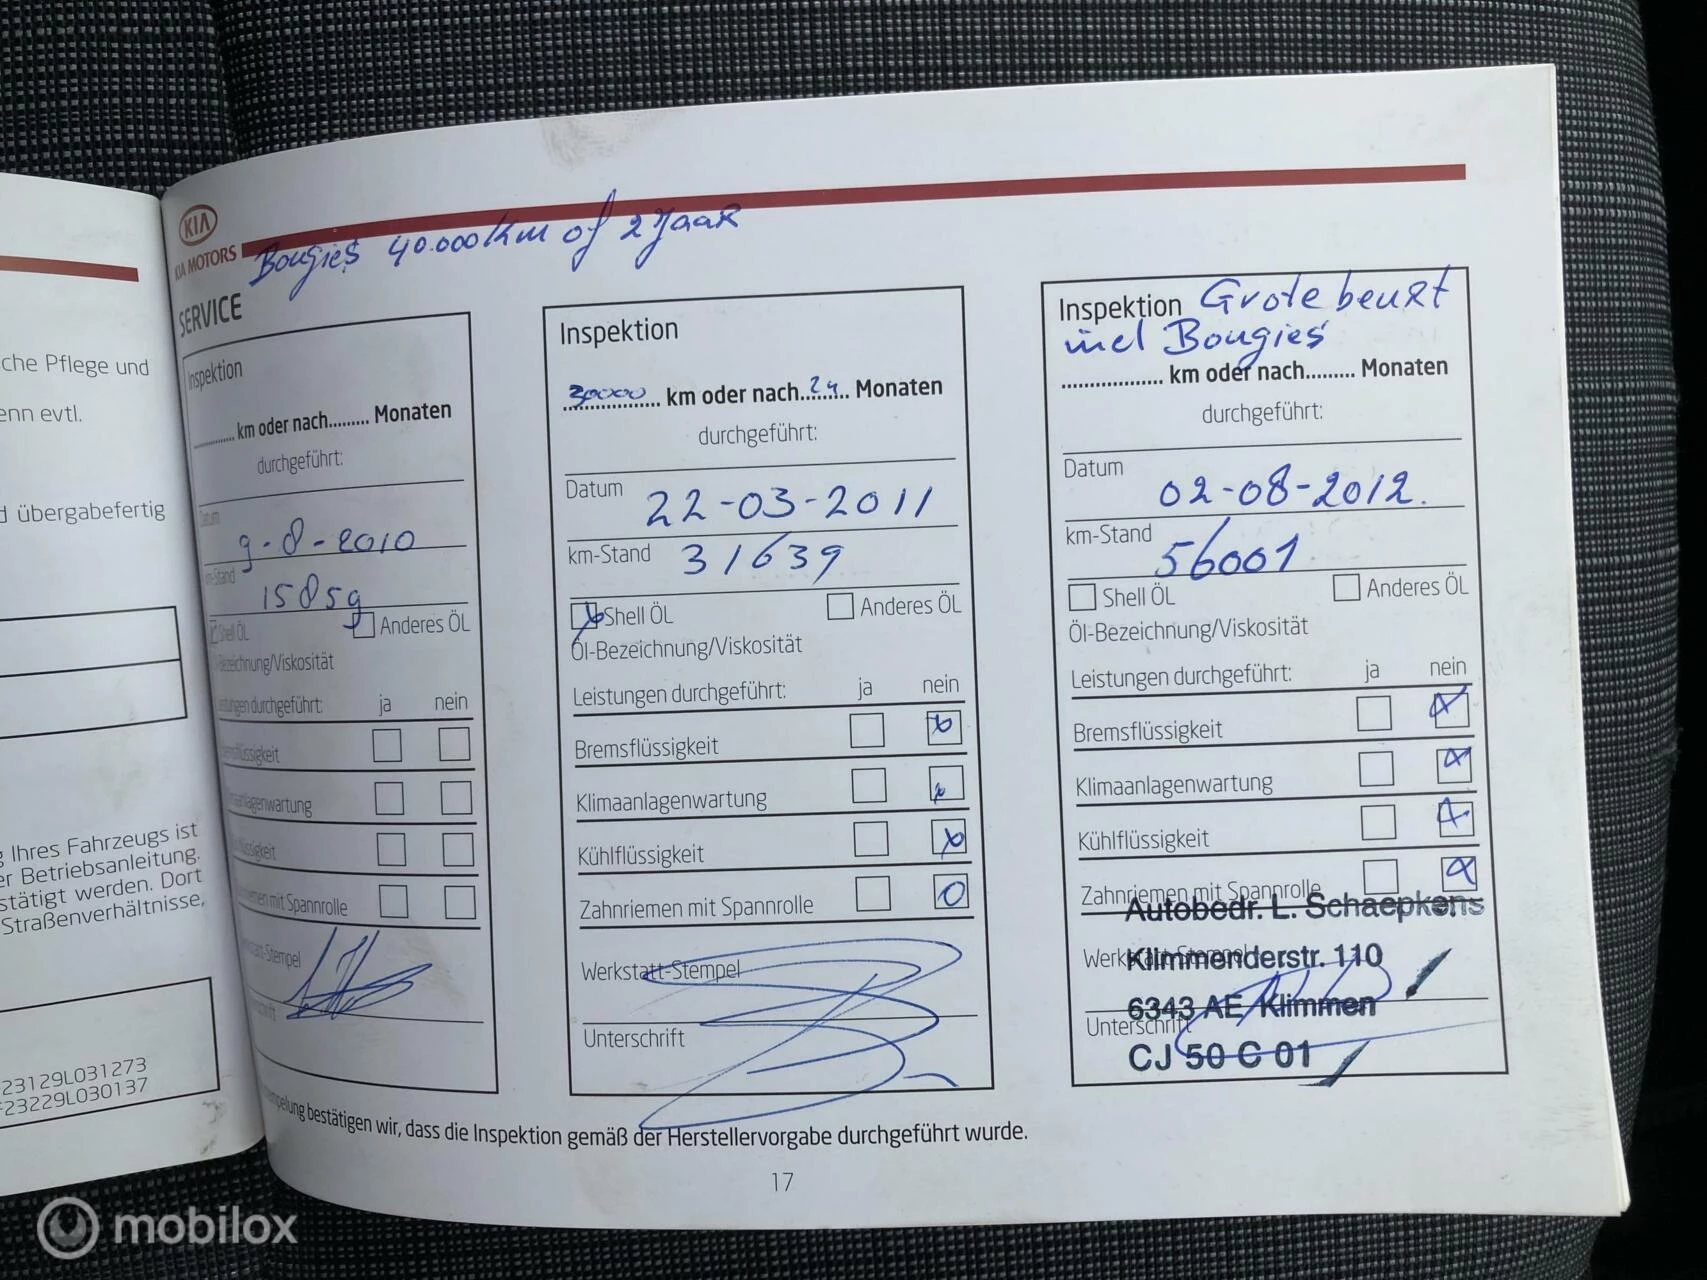 che Pflege und
enn evtl.
d übergabefertig
g Ihres Fahrzeugs ist
er Betriebsanleitung.
stätigt werden. Dort
Straßenverhältnisse,
23129L031273
F23229L030137
KIA
KIA MOTORS
Bougies 40.000 km of 2 Jaar
SERVICE
Inspektion
............ km oder nach......... Monaten
durchgeführt:
Datum
9-8-2010
km-Stand
15859
Shell ÖL
Anderes ÖL
Bezeichnung/Viskosität
ungen durchgeführt:
ja
nein
emsflüssigkeit
maanlagenwartung
flüssigkeit
riemen mit Spannrolle
statt-Stempel
schrift
Inspektion
30000 km oder nach 24 Monaten
durchgeführt:
Datum
22-03-2011
km-Stand
31639
Shell ÖL
Anderes ÖL
Öl-Bezeichnung/Viskosität
Leistungen durchgeführt:
ja
nein
Bremsflüssigkeit
Klimaanlagenwartung
Kühlflüssigkeit
Zahnriemen mit Spannrolle
Werkstatt-Stempel
Unterschrift
Inspektion Grote beurt
incl Bougies
.................. km oder nach......... Monaten
durchgeführt:
Datum
02-08-2012.
km-Stand
56001
Shell ÖL
Anderes ÖL
Öl-Bezeichnung/Viskosität
Leistungen durchgeführt:
ja
nein
Bremsflüssigkeit
Klimaanlagenwartung
Kühlflüssigkeit
Zahnriemen mit Spannrolle
Autobedr. L. Schaepkens
Werkstatt-Stempel
Klimmenderstr. 110
6343 AE Klimmen
Unterschrift
CJ 50 C 01
empelung bestätigen wir, dass die Inspektion gemäß der Herstellervorgabe durchgeführt wurde.
17
mobilox